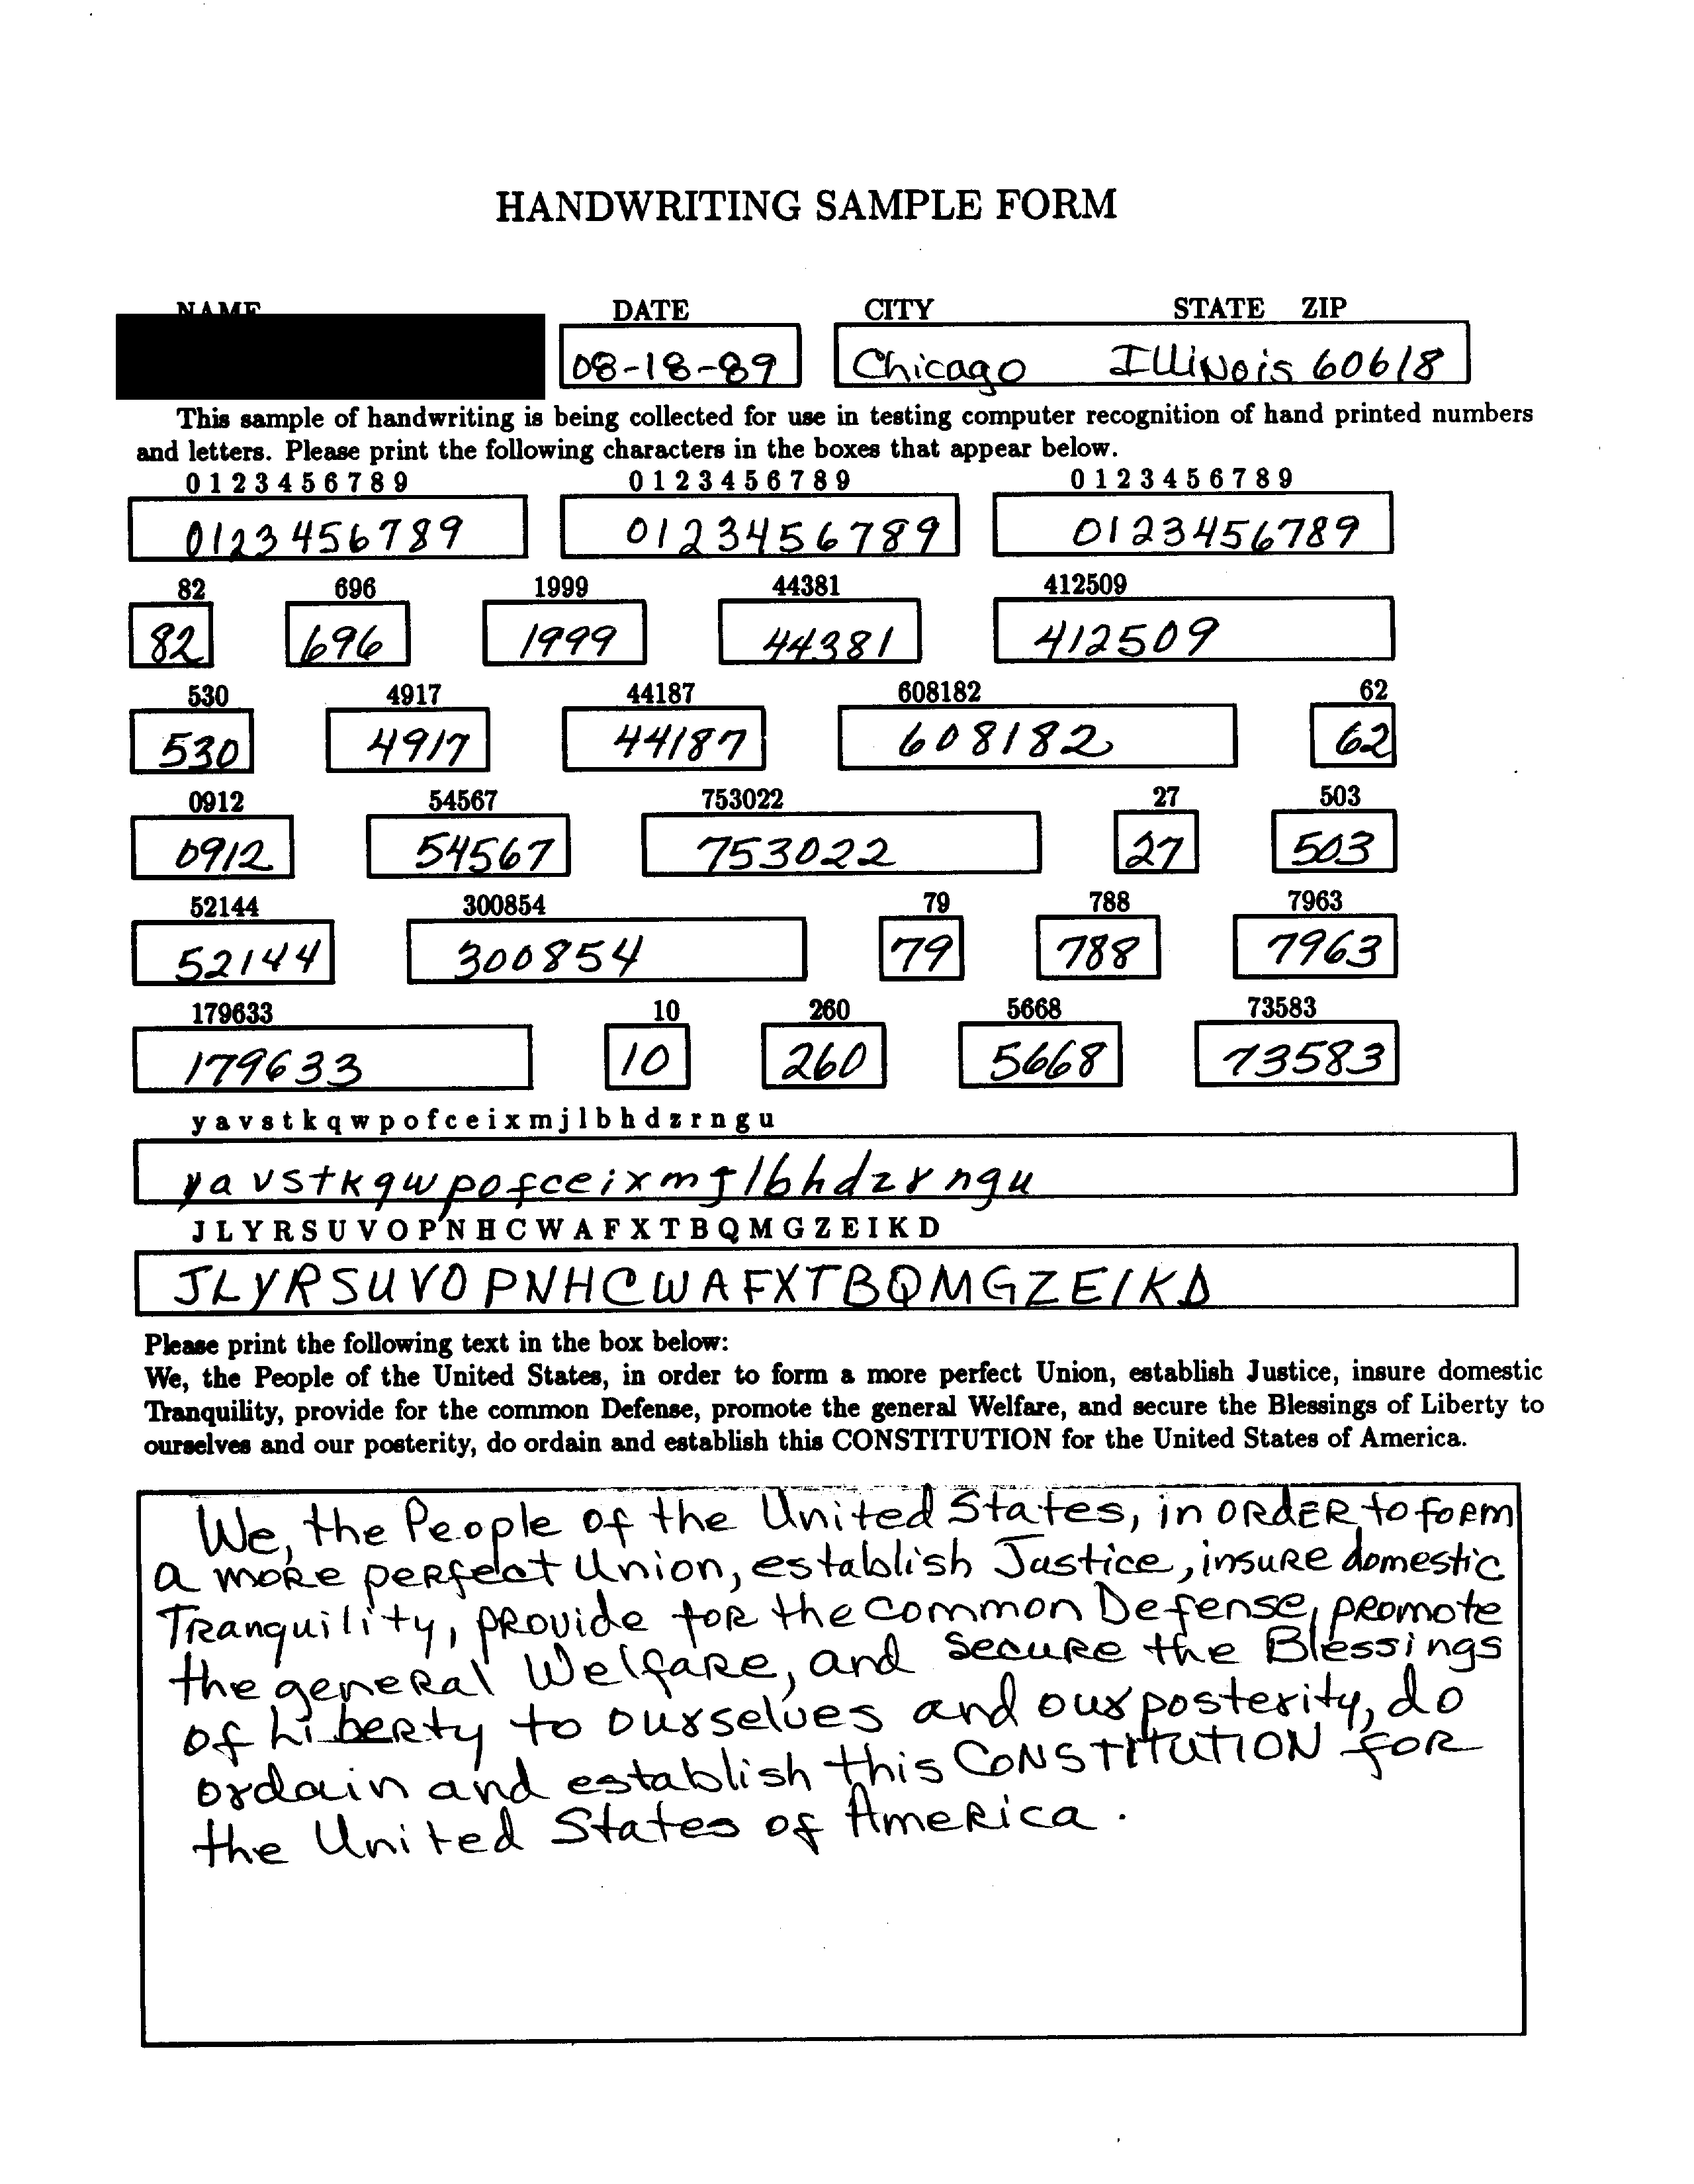 HANDWRITING SAMPLE FORM
NAME DATE CITY STATE ZIP
08-18-89 Chicago Illinois 60618
This sample of handwriting is being collected for use in testing computer recognition of hand printed numbers
and letters. Please print the following characters in the boxes that appear below.
0 1 2 3 4 5 6 7 8 9 0 1 2 3 4 5 6 7 8 9 0 1 2 3 4 5 6 7 8 9
0123456789 0123456789 0123456789
82 696 1999 44381 412509
82 696 1999 44381 412509
530 4917 44187 608182 62
530 4917 44187 608182 62
0912 54567 753022 27 503
0912 54567 753022 27 503
52144 300854 79 788 7963
52144 300854 79 788 7963
179633 10 260 5668 73583
179633 10 260 5668 73583
y a v s t k q w p o f c e i x m j l b h d z r n g u
yavstkqwpofceixmjlbhdzrngu
J L Y R S U V O P N H C W A F X T B Q M G Z E I K D
JLYRSUVOPNHCWAFXTBQMGZEIKD
Please print the following text in the box below:
We, the People of the United States, in order to form a more perfect Union, establish Justice, insure domestic
Tranquility, provide for the common Defense, promote the general Welfare, and secure the Blessings of Liberty to
ourselves and our posterity, do ordain and establish this CONSTITUTION for the United States of America.
We, the People of the United States, in ORdER to foRm
a moRe peRfect Union, establish Justice, insuRe domestic
TRanquility, pRovide foR the common Defense, pRomote
the geneRal WelfaRe, and secuRe the Blessings
of LibeRty to ourselves and our posterity, do
ordain and establish this CONSTITUTION foR
the United States of AmeRica.